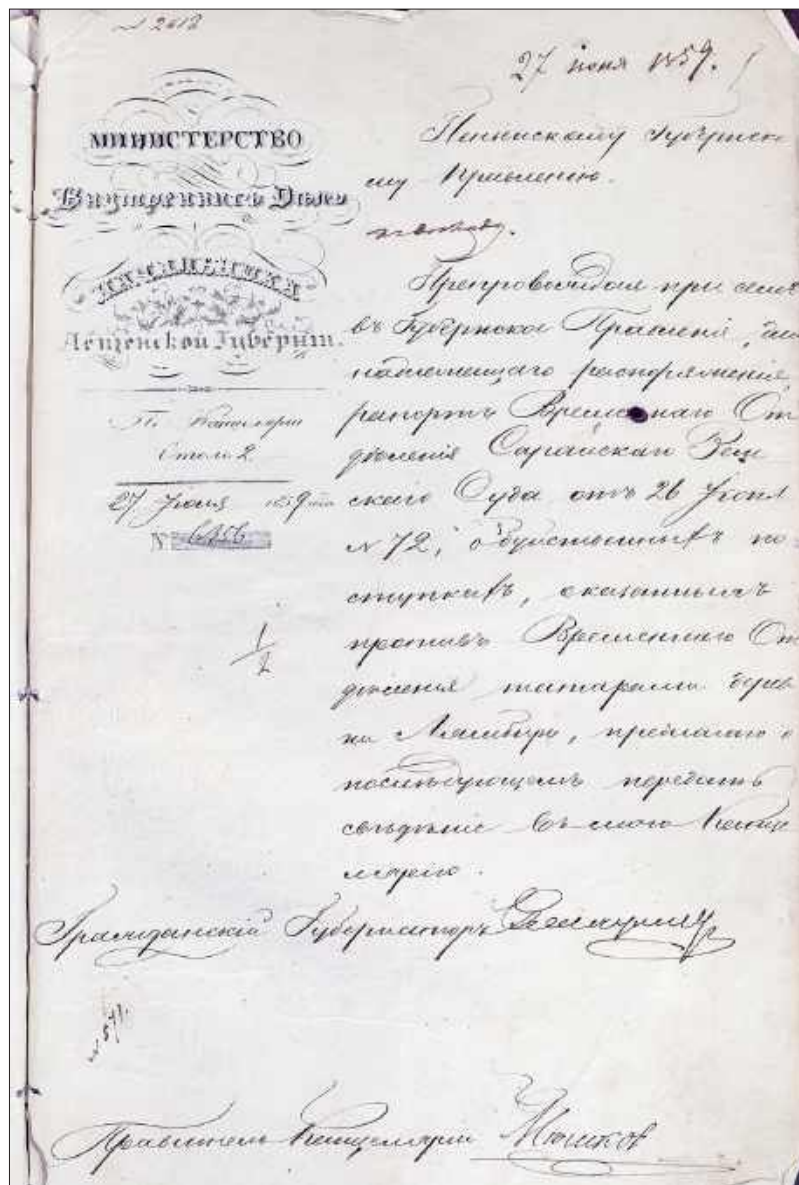 27 июня 1859.
МИНИСТЕРСТВО
Внутреннихъ Дѣлъ
НАЧАЛЬНИКА
Пензенской Губерніи.
По Канцеляріи
Столъ 2
27 Іюня 1859 года
№ 6356
Пензенскому Губернско
му Правленію.
Препровождая при семъ
въ Губернское Правленіе, для
надлежащаго распоряженія,
рапортъ Временнаго От
дѣленія Саранскаго Зем
скаго Суда отъ 26 Іюня
№ 72, о буйственныхъ по
ступкахъ, оказанныхъ
противъ Временнаго От
дѣленія татарами дерев
ни Лямбирь, предлагаю о
послѣдующемъ передать
свѣдѣніе въ мою Канце
лярію.
Гражданскій Губернаторъ
Правитель Канцеляріи